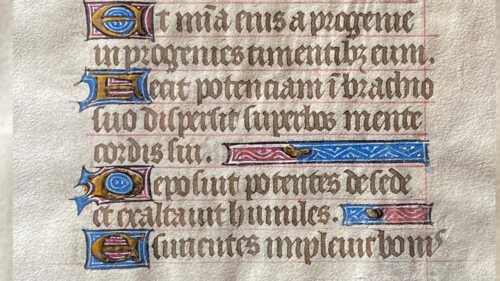 Et mia eius a progenie
in progenies timentibꝫ eum.
Fecit potenciam i brachio
suo dispersit superboꝝ mente
cordis sui.
Deposuit potentes de sede
et exaltauit humiles.
Esurientes impleuit bonis